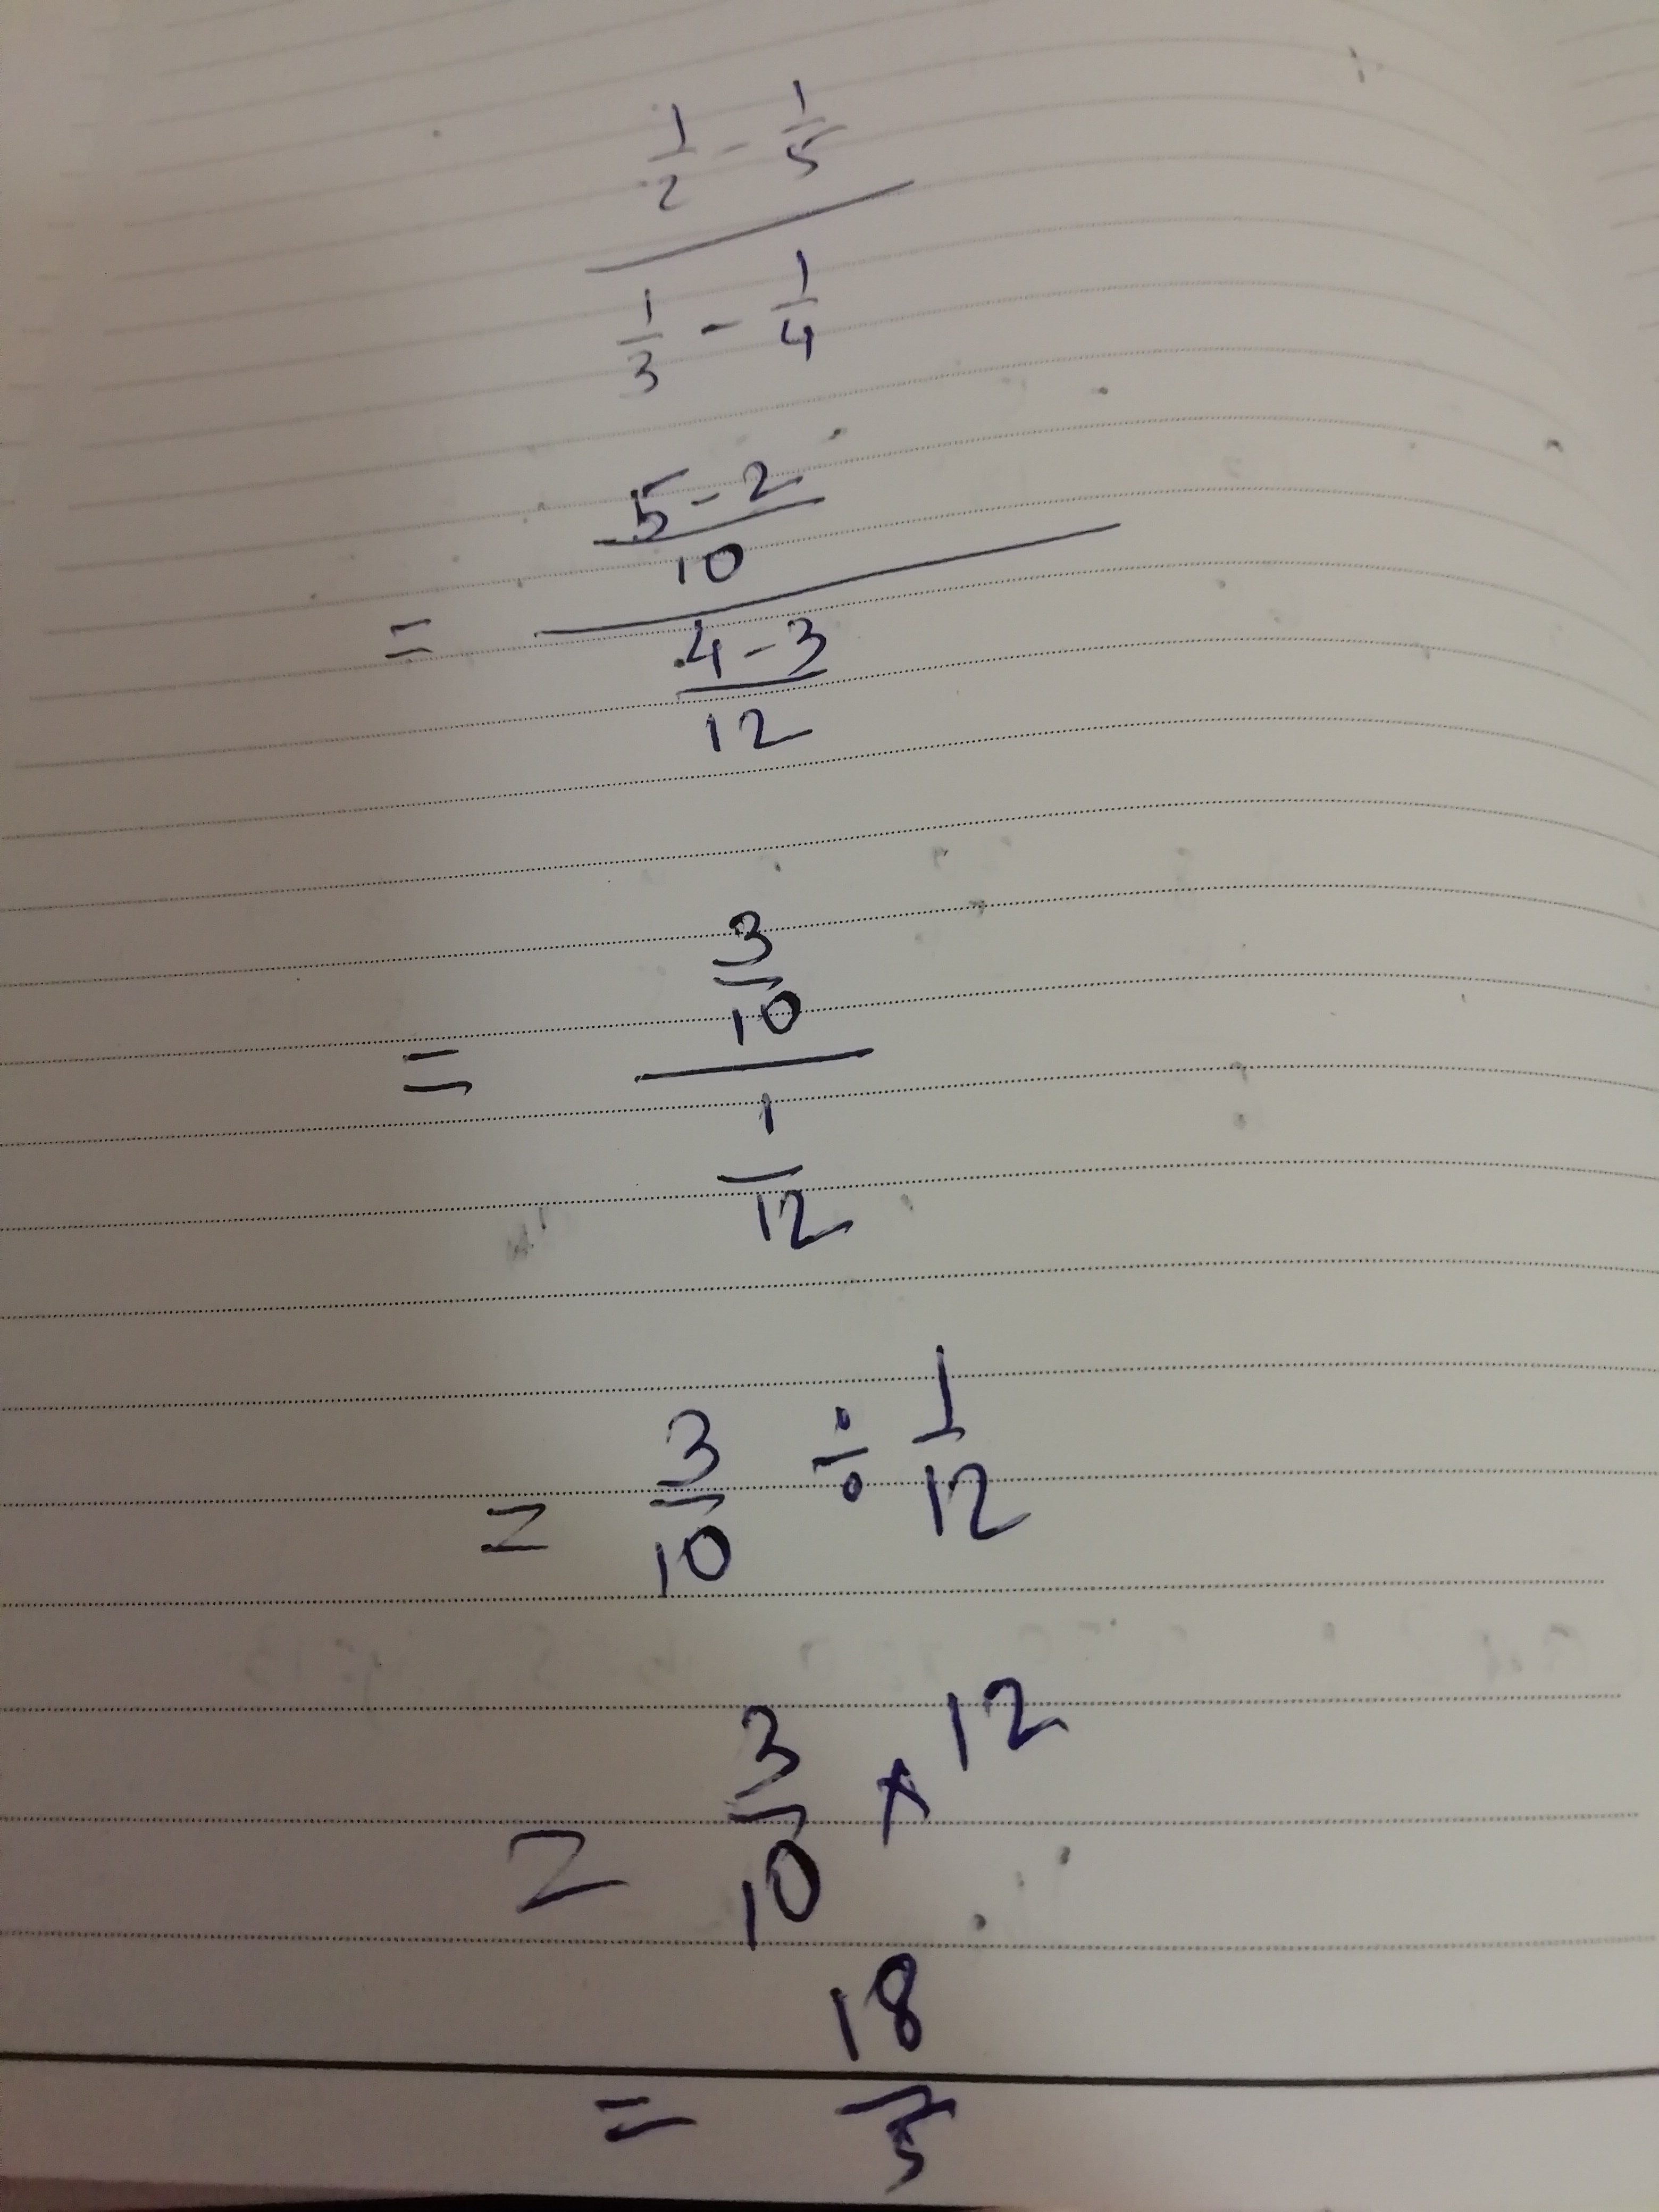 1/2 - 1/5
1/3 - 1/4
5-2
10
=
4-3
12
3
10
=
1
12
= 3/10 ÷ 1/12
= 3/10 × 12
= 18/5